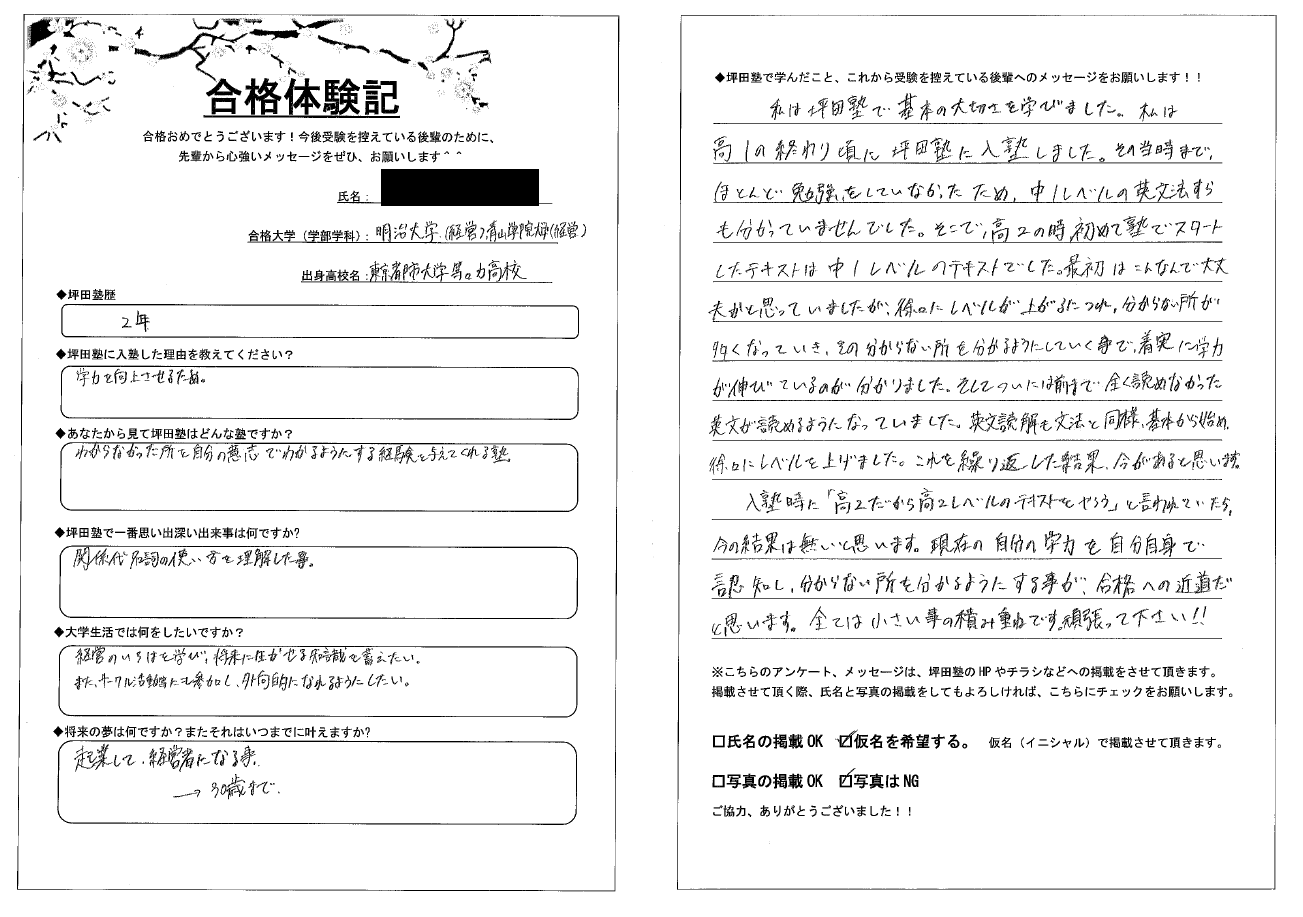 合格体験記
合格おめでとうございます！今後受験を控えている後輩のために、
先輩から心強いメッセージをぜひ、お願いします＾＾
氏名：
合格大学（学部学科）：明治大学（経営）、青山学院大学（経営）
出身高校名：東京都市大学等々力高校
◆坪田塾歴
2年
◆坪田塾に入塾した理由を教えてください？
学力を向上させるため。
◆あなたから見て坪田塾はどんな塾ですか？
わからなかった所を自分の意志でわかるようにする経験を与えてくれる塾。
◆坪田塾で一番思い出深い出来事は何ですか?
関係代名詞の使い方を理解した事。
◆大学生活では何をしたいですか？
経営のいろはを学び、将来に生かせる知識を蓄えたい。
また、サークル活動等にも参加し、外向的になれるようにしたい。
◆将来の夢は何ですか？またそれはいつまでに叶えますか?
起業して、経営者になる事。
→ 30歳まで。
◆坪田塾で学んだこと、これから受験を控えている後輩へのメッセージをお願いします！！
私は坪田塾で基本の大切さを学びました。私は
高1の終わり頃に坪田塾に入塾しました。その当時まで、
ほとんど勉強をしていなかったため、中1レベルの英文法すら
も分かっていませんでした。そこで、高2の時、初めて塾でスタート
したテキストは中1レベルのテキストでした。最初はこんなんで大丈
夫かと思っていましたが、徐々にレベルが上がるにつれ、分からない所が
多くなっていき、その分からない所を分かるようにしていく事で、着実に学力
が伸びているのが分かりました。そしてついには前まで全く読めなかった
英文が読めるようになっていました。英文読解も文法と同様、基本から始め、
徐々にレベルを上げました。これを繰り返した結果、今があると思います。
入塾時に「高2だから高2レベルのテキストをやろう」と言われていたら、
今の結果は無いと思います。現在の自分の学力を自分自身で
認知し、分からない所を分かるようにする事が、合格への近道だ
と思います。全ては小さい事の積み重ねです。頑張って下さい!!
※こちらのアンケート、メッセージは、坪田塾のHPやチラシなどへの掲載をさせて頂きます。
掲載させて頂く際、氏名と写真の掲載をしてもよろしければ、こちらにチェックをお願いします。
□氏名の掲載OK ☑仮名を希望する。 仮名（イニシャル）で掲載させて頂きます。
□写真の掲載OK ☑写真はNG
ご協力、ありがとうございました！！